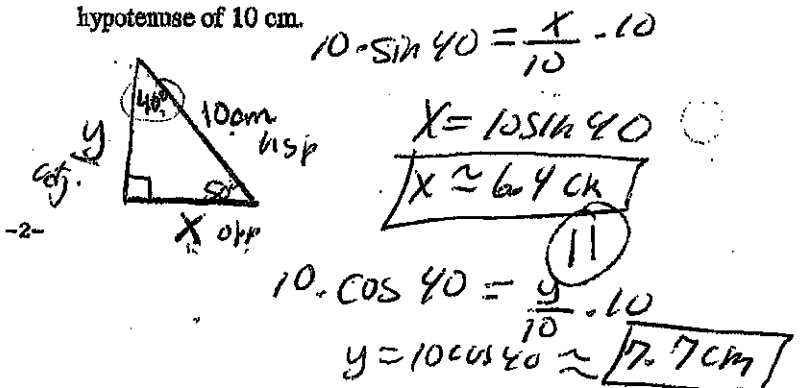 hypotenuse of 10 cm.
10 · sin 40 = x/10 · 10
40°
10cm
hyp
y
adj.
50°
x opp
-2-
x = 10 sin 40
x ≃ 6.4 cm
11
10 · cos 40 = y/10 · 10
y = 10 cos 40 ≈ 7.7 cm